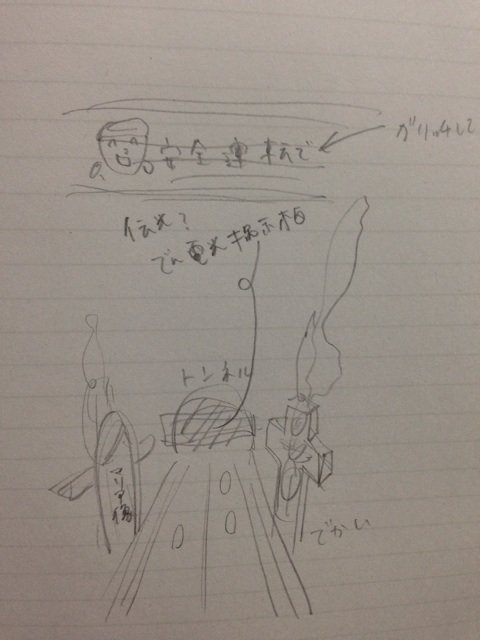 安全運転で
ガリッ4して
伝光?
でん電光掲示板
トンネル
マリア像
でかい